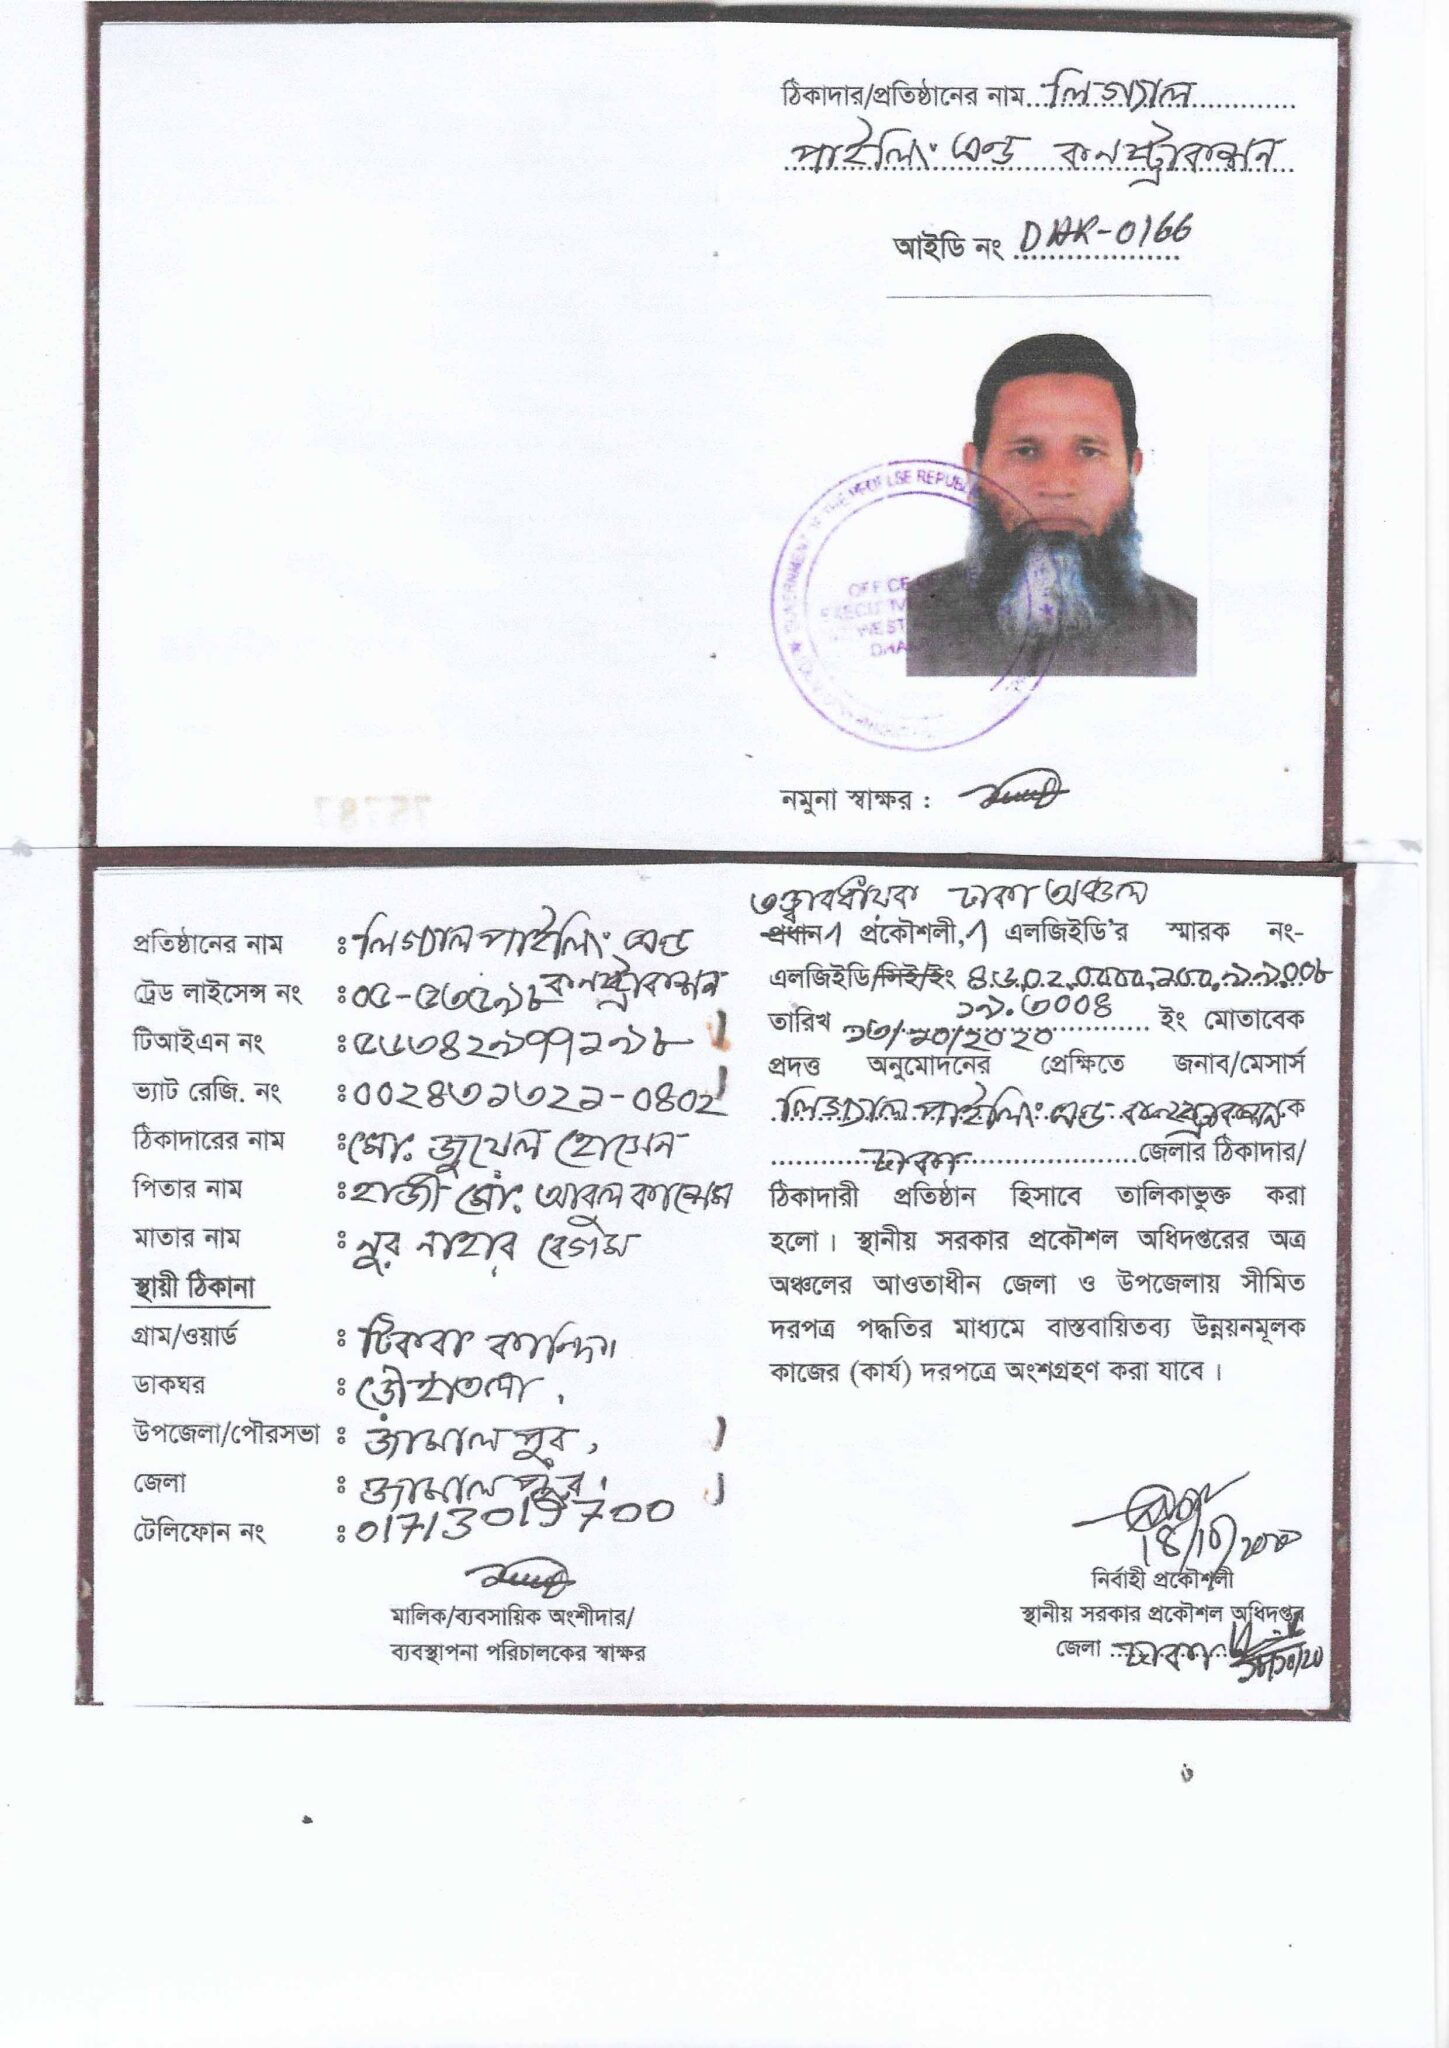 ঠিকাদার/প্রতিষ্ঠানের নাম লিগ্যাল
পাইলিং এন্ড কনস্ট্রাকশন
আইডি নং DHK-0166
OFFICE
নমুনা স্বাক্ষর :
75787
প্রতিষ্ঠানের নাম : লিগ্যাল পাইলিং এন্ড
কনস্ট্রাকশন
ট্রেড লাইসেন্স নং :
টিআইএন নং :
ভ্যাট রেজি. নং : 002৪৩১৩২১-0৪0২
ঠিকাদারের নাম : মো. জুয়েল হোসেন
পিতার নাম : হাজী মো. আবুল কাশেম
মাতার নাম : নুর নাহার বেগম
স্থায়ী ঠিকানা
গ্রাম/ওয়ার্ড :
ডাকঘর :
উপজেলা/পৌরসভা : জামালপুর,
জেলা : জামালপুর।
টেলিফোন নং : 01713015700
মালিক/ব্যবসায়িক অংশীদার/
ব্যবস্থাপনা পরিচালকের স্বাক্ষর
তত্ত্বাবধায়ক ঢাকা অঞ্চল
প্রধান প্রকৌশলী, এলজিইডি'র স্মারক নং-
এলজিইডি/সিই/ইং
তারিখ ১৩/১০/২০২০ ইং মোতাবেক
প্রদত্ত অনুমোদনের প্রেক্ষিতে জনাব/মেসার্স
লিগ্যাল পাইলিং এন্ড কনস্ট্রাকশন ক
ঢাকা জেলার ঠিকাদার/
ঠিকাদারী প্রতিষ্ঠান হিসাবে তালিকাভুক্ত করা
হলো। স্থানীয় সরকার প্রকৌশল অধিদপ্তরের অত্র
অঞ্চলের আওতাধীন জেলা ও উপজেলায় সীমিত
দরপত্র পদ্ধতির মাধ্যমে বাস্তবায়িতব্য উন্নয়নমূলক
কাজের (কার্য) দরপত্রে অংশগ্রহণ করা যাবে।
নির্বাহী প্রকৌশলী
স্থানীয় সরকার প্রকৌশল অধিদপ্তর
জেলা ঢাকা